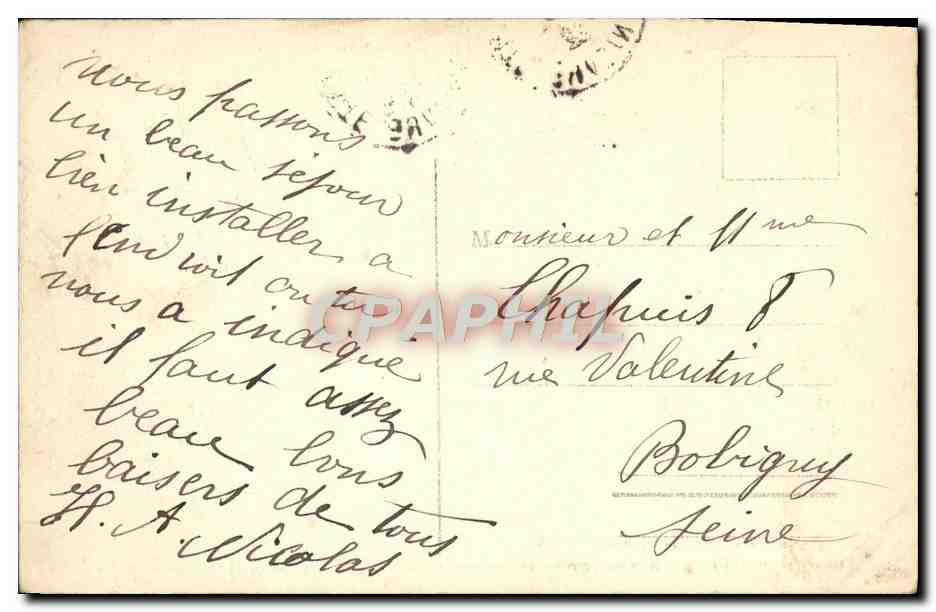 nous passons
un beau séjour
bien installer a
l'endroit ou tu
nous a indiqué
il faut assez
beau bons
baisers de tous
H. A. Nicolas
Monsieur et Mme
Chapuis 8
rue Valentine
Bobigny
Seine
CPAPHIL